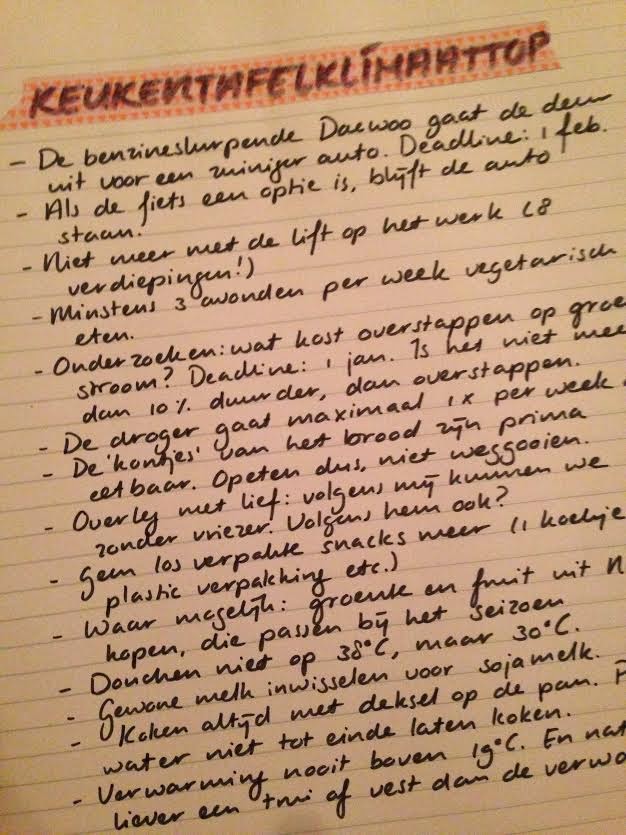 KEUKENTAFELKLIMAATTOP
- De benzineslurpende Daewoo gaat de deur
uit voor een zuiniger auto. Deadline: 1 feb.
- Als de fiets een optie is, blijft de auto
staan.
- Niet meer met de lift op het werk (8
verdiepingen!)
- Minstens 3 avonden per week vegetarisch
eten.
- Onderzoeken: wat kost overstappen op groe
stroom? Deadline: 1 jan. Is het niet mee
dan 10% duurder, dan overstappen.
- De droger gaat maximaal 1x per week
- De 'kontjes' van het brood zijn prima
eetbaar. Opeten dus, niet weggooien.
- Overleg met lief: volgens mij kunnen we
zonder vriezer. Volgens hem ook?
- Geen los verpakte snacks meer (1 koekje
plastic verpakking etc.)
- Waar mogelijk: groente en fruit uit N
kopen, die passen bij het seizoen
- Douchen niet op 38°C, maar 30°C.
- Gewone melk inwisselen voor sojamelk.
- Koken altijd met deksel op de pan. P
water niet tot einde laten koken.
- Verwarming nooit boven 19°C. En nat
liever een trui of vest dan de verwa